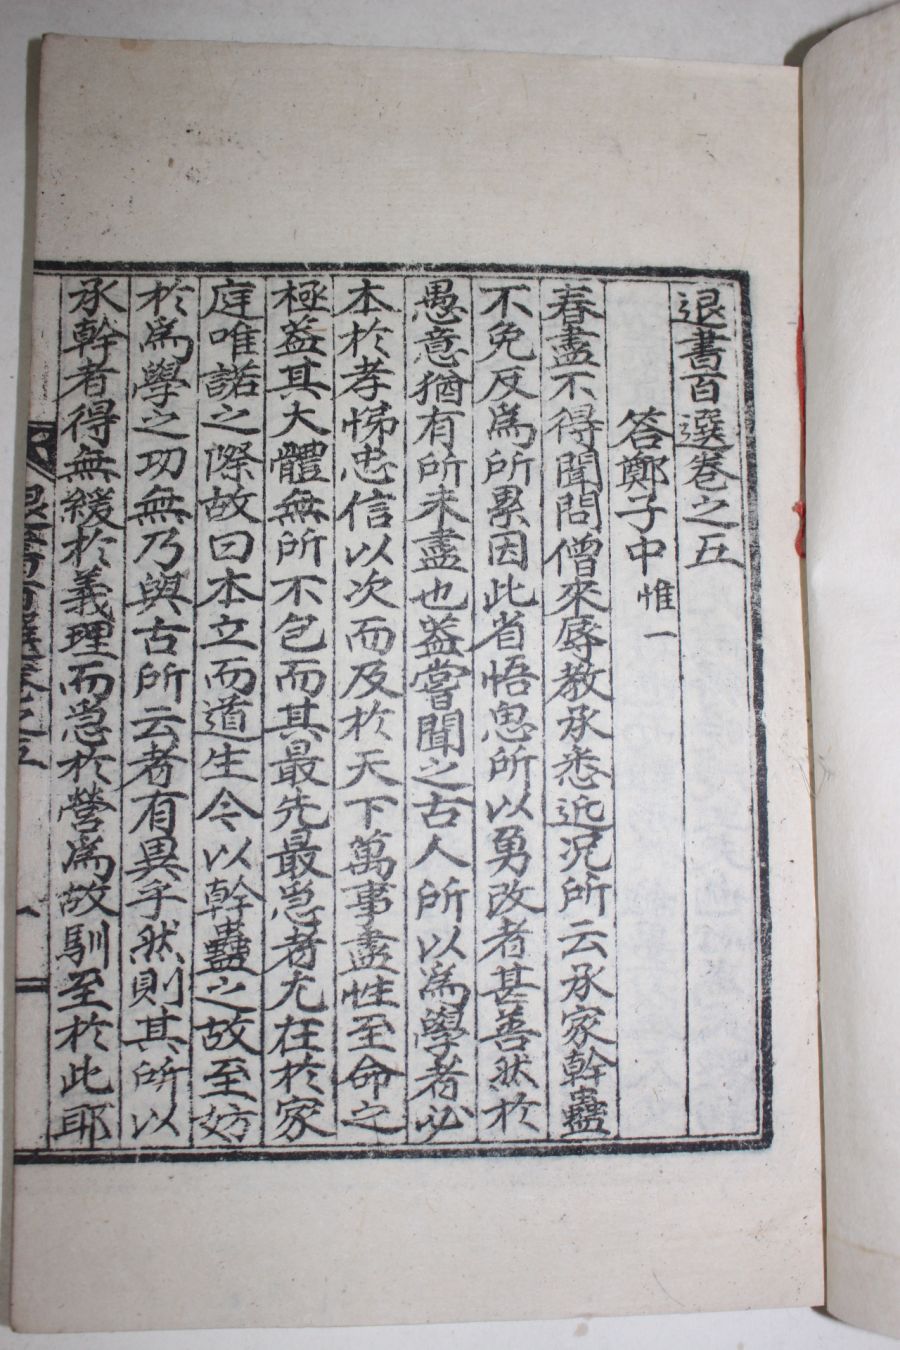 退書百選卷之五
答鄭子中惟一
春盡不得聞問僧來辱教承悉近況所云承家幹蠱
不免反爲所累因此省悟思所以勇改者甚善然於
愚意猶有所未盡也蓋嘗聞之古人所以爲學者必
本於孝悌忠信以次而及於天下萬事盡性至命之
極蓋其大體無所不包而其最先最急者尤在於家
庭唯諾之際故曰本立而道生今以幹蠱之故至妨
於爲學之功無乃與古所云者有異乎然則其所以
承幹者得無緩於義理而急於營爲故馴至於此耶
退書百選卷之五